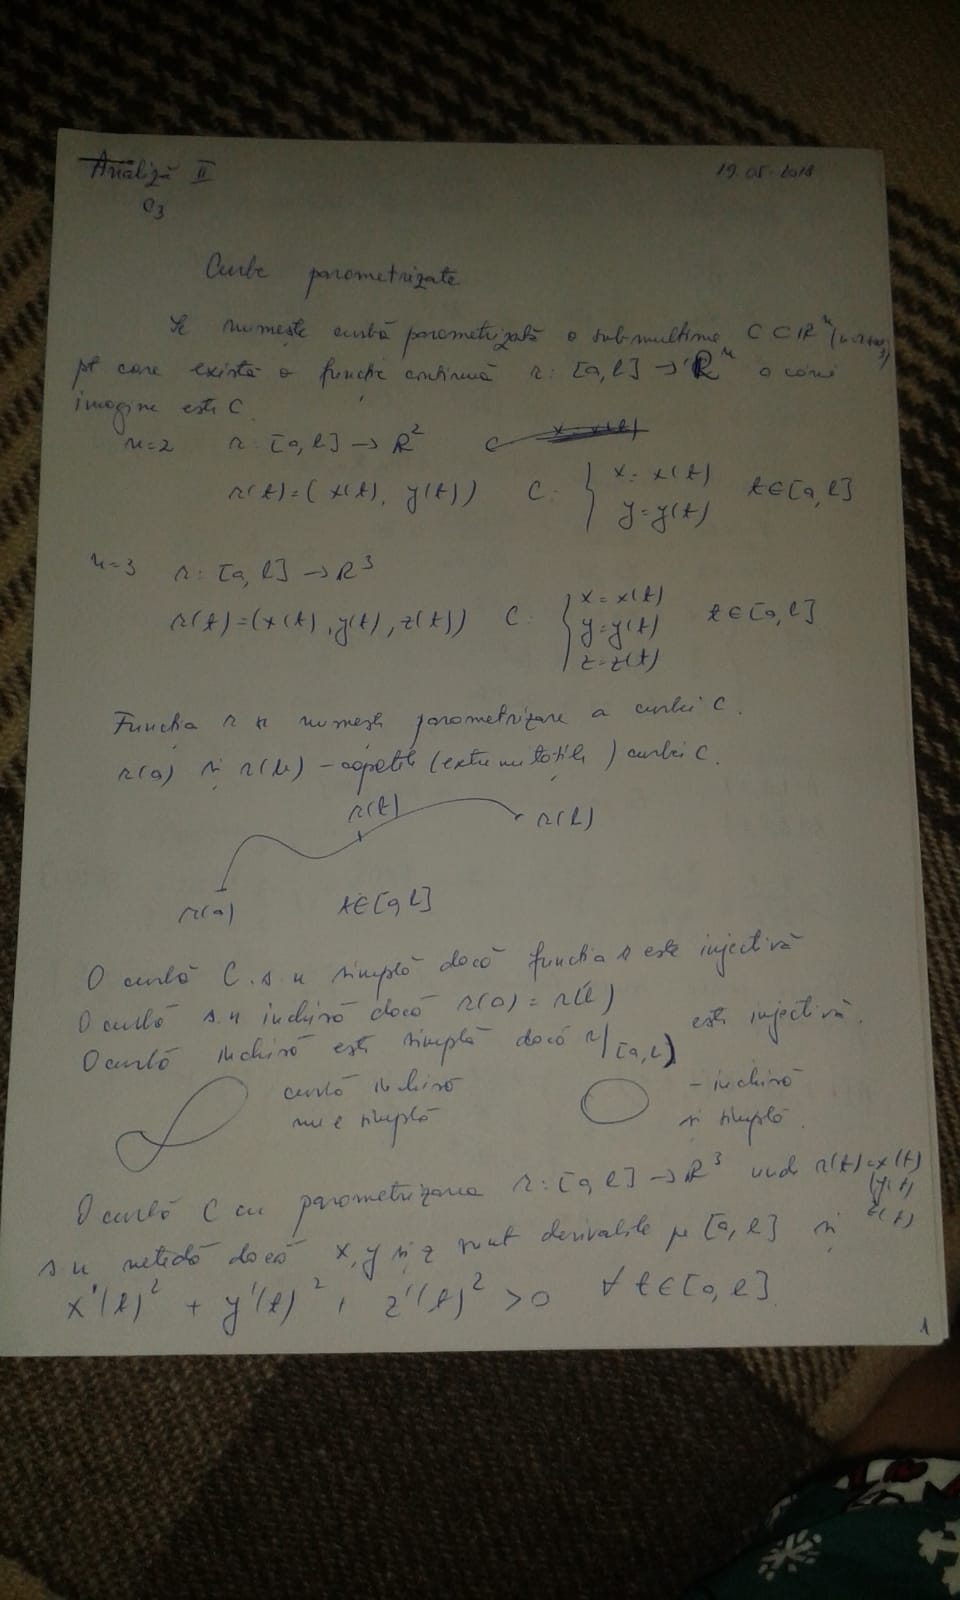 Analiză II 19.05.2018
C3
Curbe parametrizate
Se numește curbă parametrizată o submultime C ⊂ R^n
pt care există o functie continuă r: [a,b] → R^n a cărei
imagine este C.
n=2 r: [a,b] → R^2 C
r(t)=(x(t), y(t)) C: { x=x(t) y=y(t) t∈[a,b]
n=3 r: [a,b] → R^3
r(t)=(x(t), y(t), z(t)) C: { x=x(t) y=y(t) z=z(t) t∈[a,b]
Functia r se numește parametrizare a curbei C.
r(a) și r(b) – capetele (extremitățile) curbei C.
r(t)
r(b)
r(a) t∈[a,b]
O curbă C s.n simplă dacă functia r este injectivă
O curbă s.n închisă dacă r(a)=r(b)
O curbă închisă este simplă dacă r/[a,b) este injectivă.
curbă închisă – închisă
nu e simplă și simplă.
O curbă C cu parametrizarea r: [a,b] → R^3 unde r(t)=x(t)
(y(t)
z(t)
s n netedă dacă x, y și z sunt derivabile pe [a,b] și
x'(t)^2 + y'(t)^2 + z'(t)^2 > 0 ∀ t∈[a,b]
1